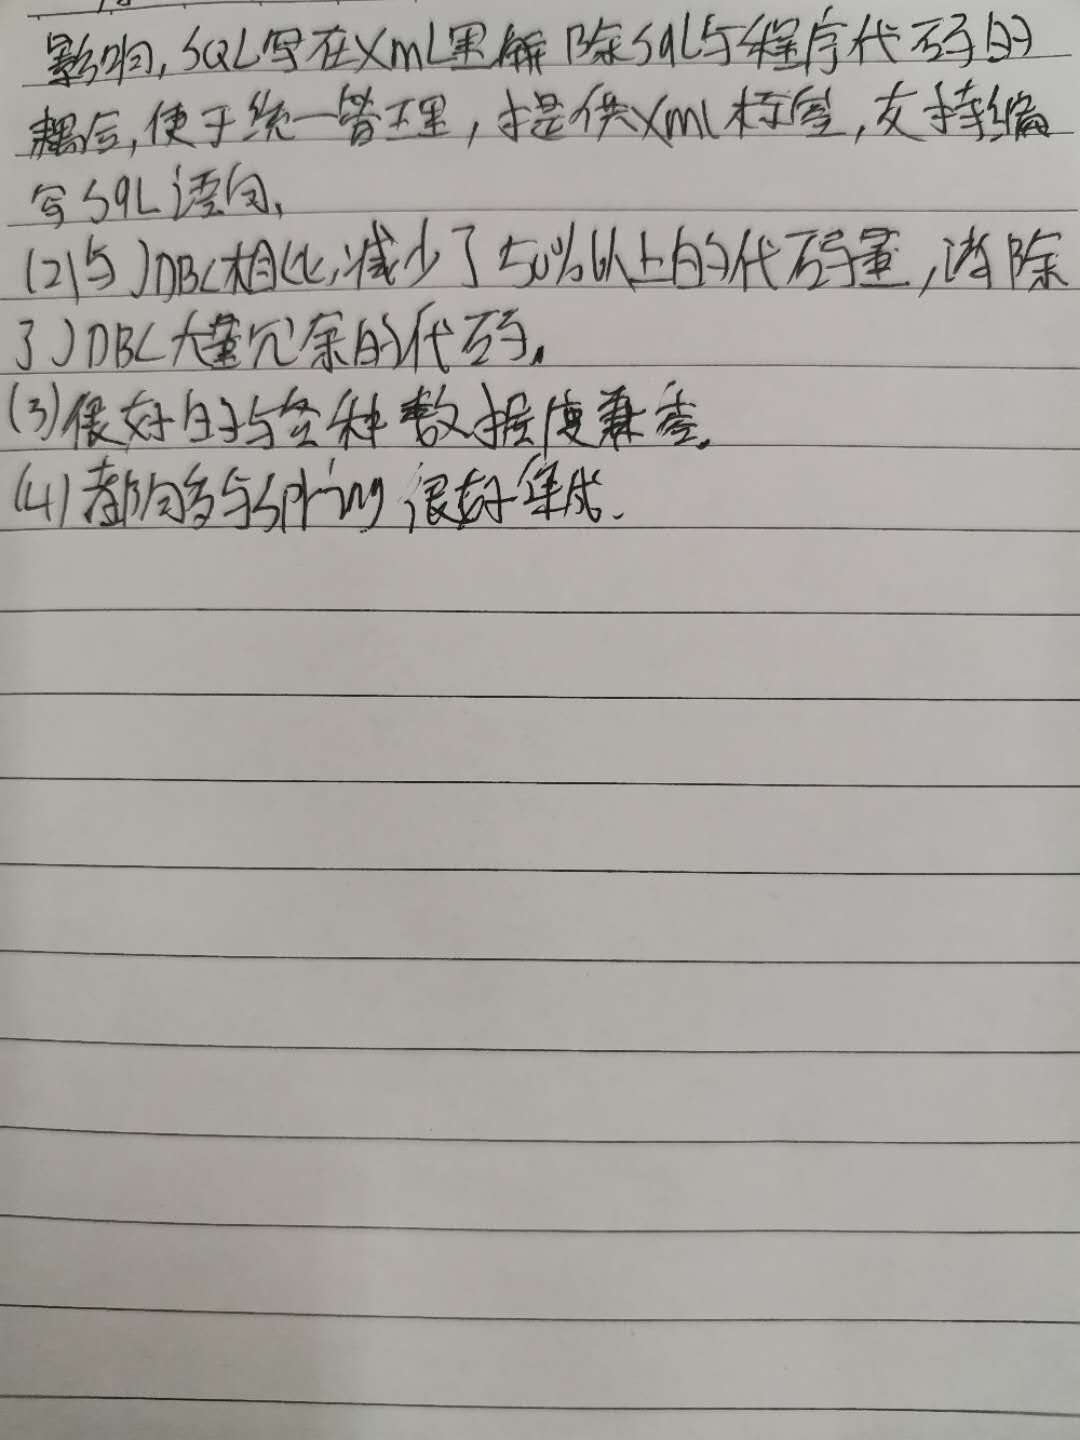 影响,SQL写在XmL里解除sqL与程序代码的
耦合,便于统一管理,提供Xml标签,支持编
写sqL语句,
(2)与JDBC相比,减少了50%以上的代码量,消除
了JDBC大量冗余的代码.
(3)很好的与各种数据库兼容.
(4)都向多与spring很好集成.